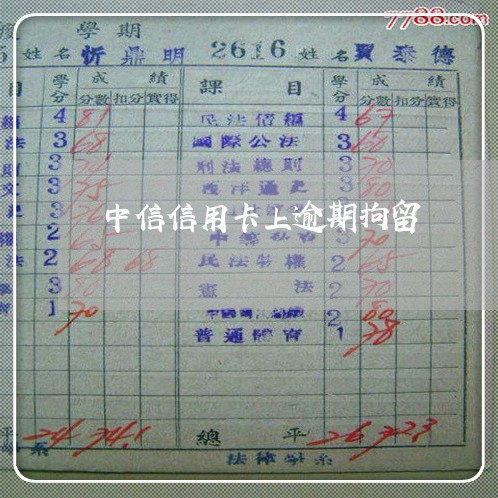 7788.com
學期
姓名 忻鼎明 2616 姓名 賈泰德
目 學分 成績 課目 學分 成績
分數 扣分 實得 分數 扣分 實得
4 81 民法債編 4 67
法 3 68 國際公法 3 60
3 刑法總則 3 70
3 75 西洋通史 3 80
3
中信信用卡上逾期拘留
2 65 3 70
法 2 68 68 民法物權 2 65
3 80 憲法 2 70
1 70 2 80
普通體育 1 78
平 24 74.1 總平 26 72.3
系 法律學系